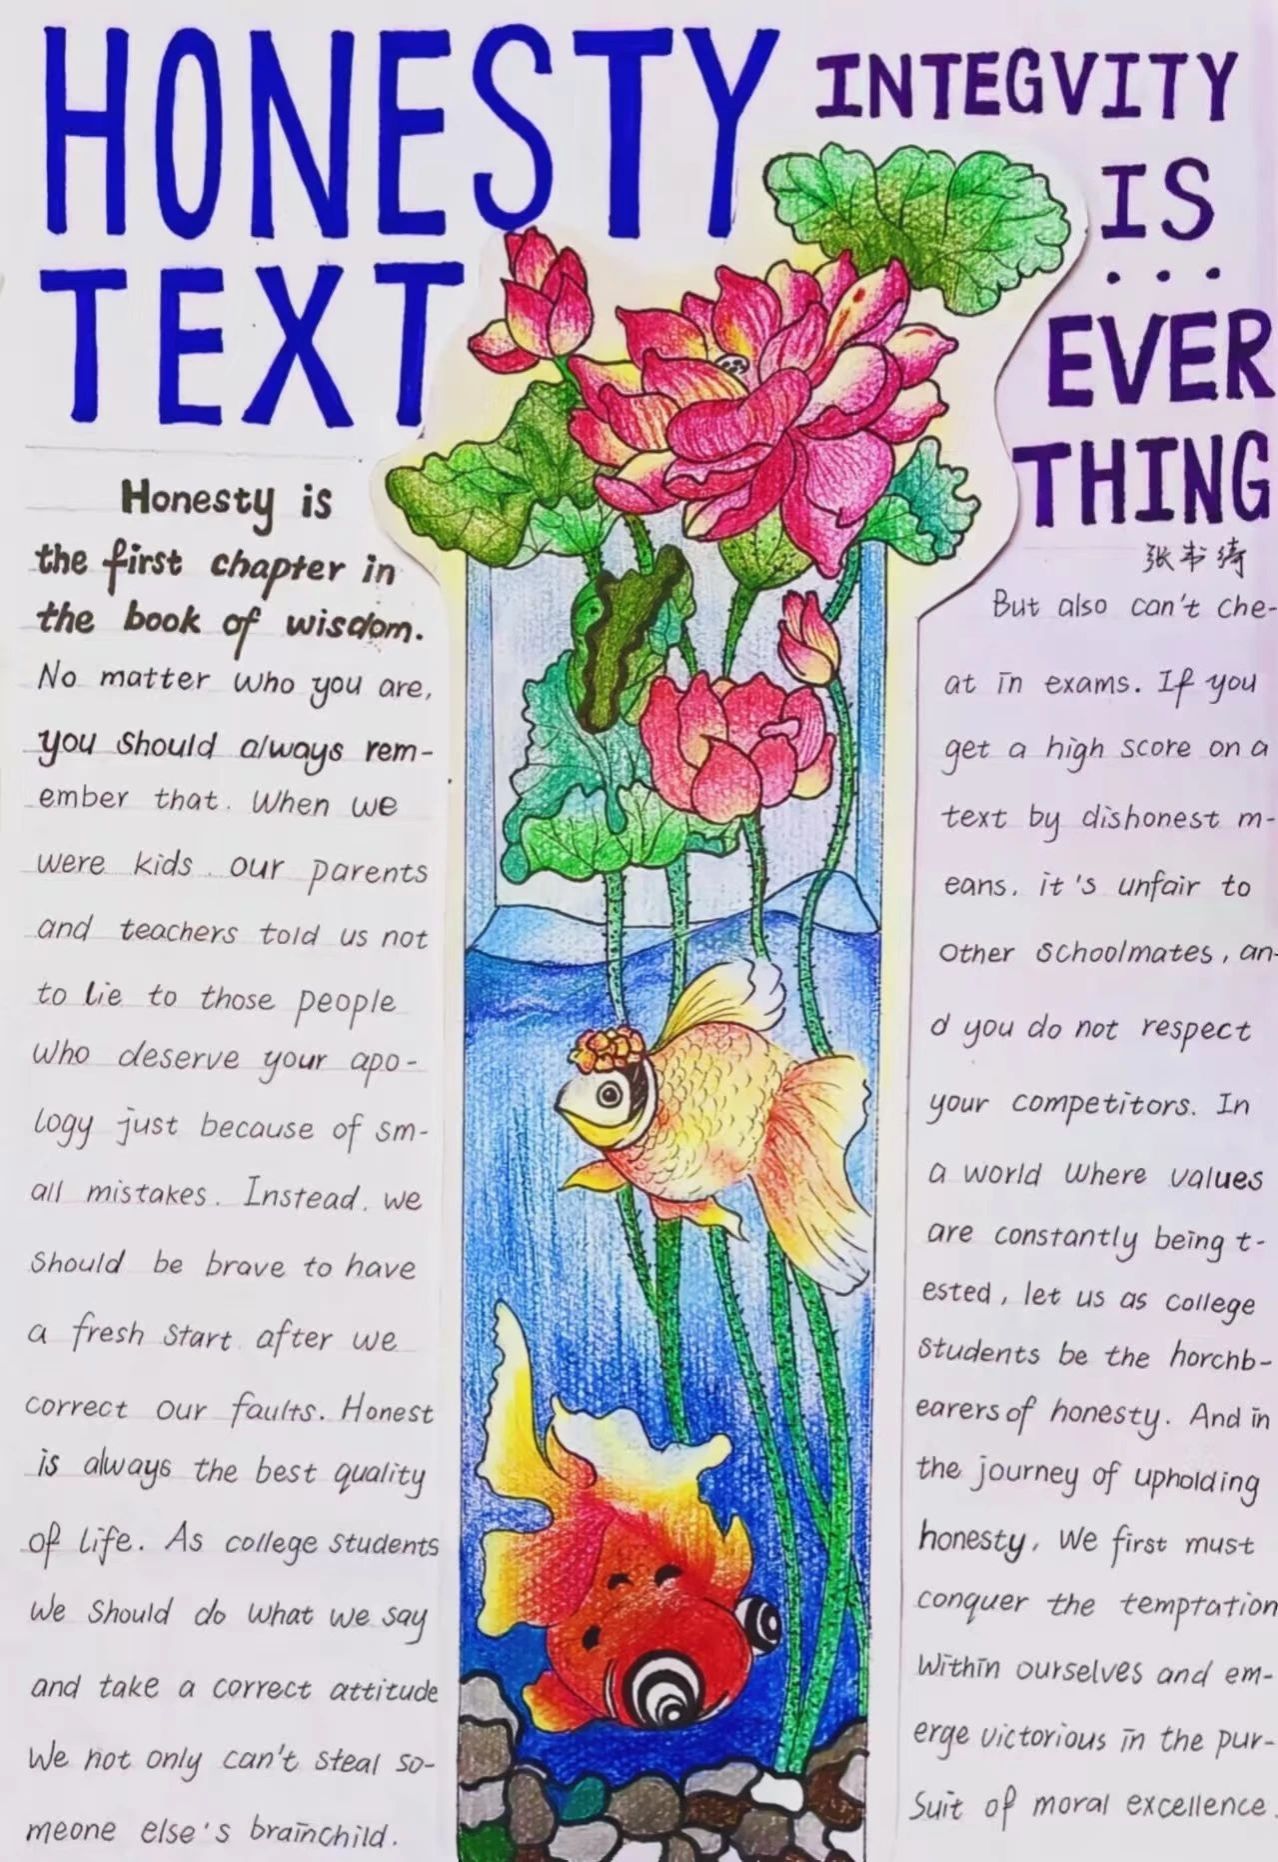 HONESTY
TEXT
Honesty is
the first chapter in
the book of wisdom.
No matter who you are,
you should always rem-
ember that. When we
were kids. our parents
and teachers told us not
to lie to those people
who deserve your apo-
logy just because of sm-
all mistakes. Instead. we
should be brave to have
a fresh start after we
correct our faults. Honest
is always the best quality
of life. As college students
we should do what we say
and take a correct attitude
we not only can't steal so-
meone else's brainchild.
INTEGVITY
IS
...
EVER
THING
张韦琦
But also can't che-
at in exams. If you
get a high score on a
text by dishonest m-
eans. it's unfair to
other schoolmates, an-
d you do not respect
your competitors. In
a world where values
are constantly being t-
ested, let us as college
students be the horchb-
earers of honesty. And in
the journey of upholding
honesty, we first must
conquer the temptation
within ourselves and em-
erge victorious in the pur-
suit of moral excellence.